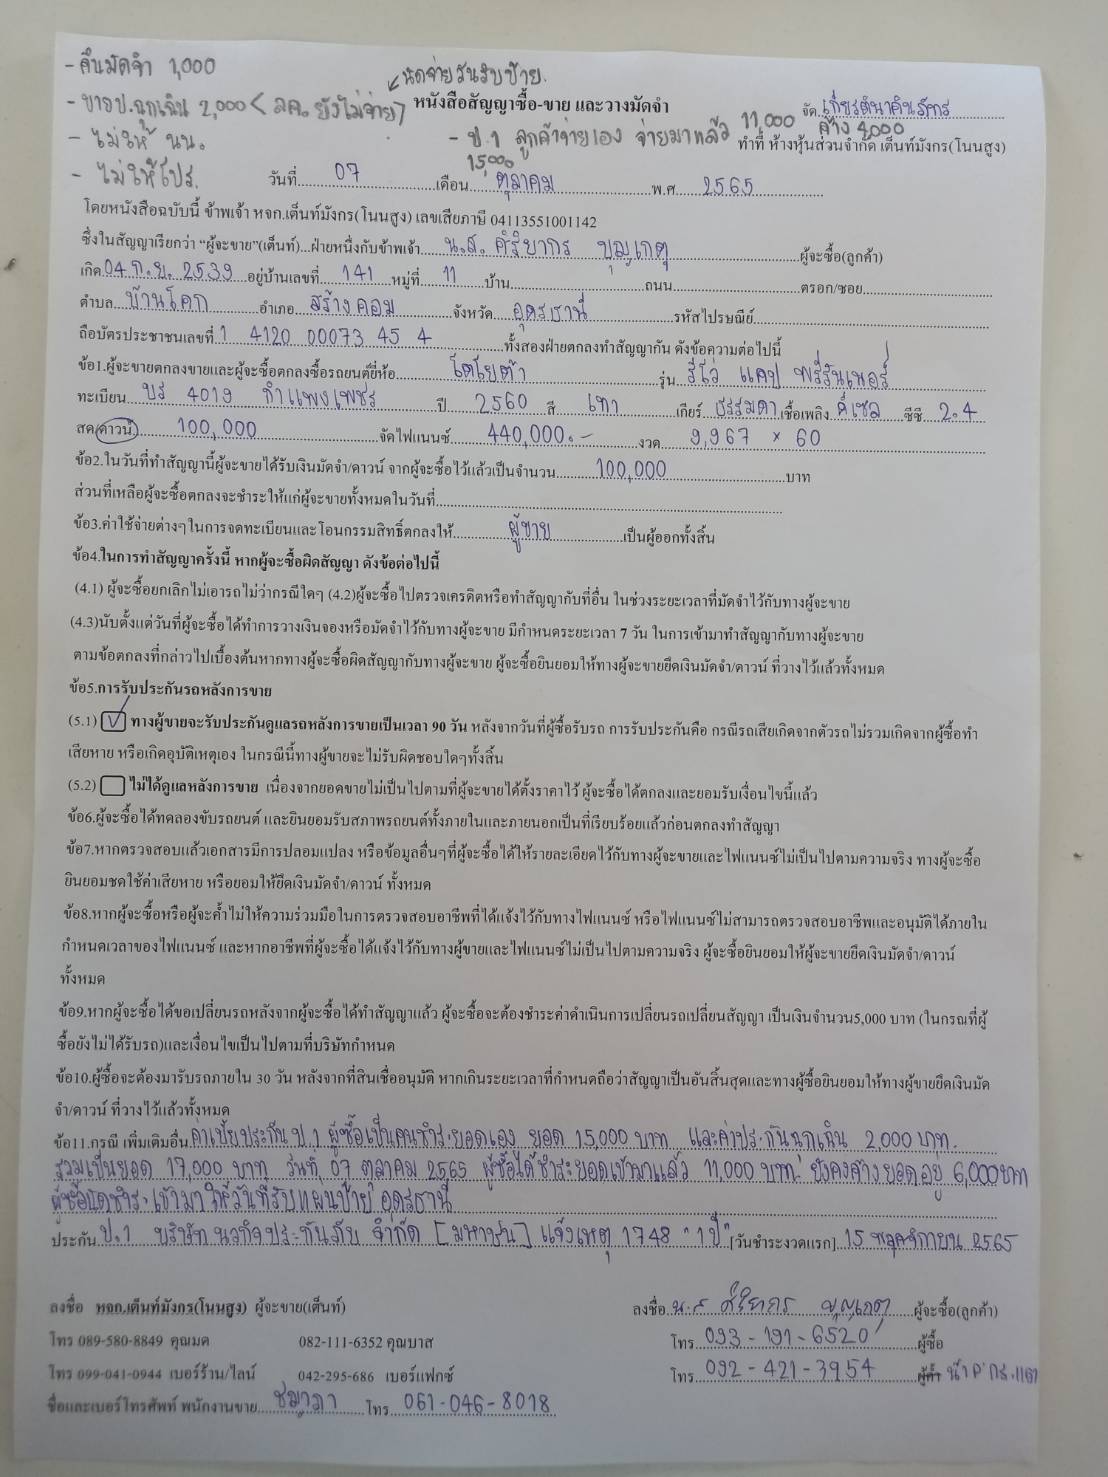 - คืนมัดจำ 1,000
นัดจ่ายวันรับป้าย.
- ขายป.ฉุกเฉิน 2,000 < ลค. ยังไม่จ่าย>
หนังสือสัญญาซื้อ-ขาย และวางมัดจำ
จัด เกียรตินาคินภัทร
- ไม่ให้ นน.
- ป.1 ลูกค้าจ่ายเอง จ่ายมาแล้ว 11,000 ค้าง 4,000
15,000
ทำที่ ห้างหุ้นส่วนจำกัด เต็นท์มังกร(โนนสูง)
- ไม่ให้โปร.
วันที่ 07 เดือน ตุลาคม พ.ศ 2565
โดยหนังสือฉบับนี้ ข้าพเจ้า หจก.เต็นท์มังกร(โนนสูง) เลขเสียภาษี 04113551001142
ซึ่งในสัญญาเรียกว่า "ผู้จะขาย"(เต็นท์)...ฝ่ายหนึ่งกับข้าพเจ้า น.ส. ศิริยากร บุญเกตุ ผู้จะซื้อ(ลูกค้า)
เกิด 04 ก.ย. 2539 อยู่บ้านเลขที่ 141 หมู่ที่ 11 บ้าน ถนน ตรอก/ซอย
ตำบล บ้านโคก อำเภอ สร้างคอม จังหวัด อุดรธานี รหัสไปรษณีย์
ถือบัตรประชาชนเลขที่ 1 4120 00073 45 4 ทั้งสองฝ่ายตกลงทำสัญญากัน ดังข้อความต่อไปนี้
ข้อ1.ผู้จะขายตกลงขายและผู้จะซื้อตกลงซื้อรถยนต์ยี่ห้อ โตโยต้า รุ่น รีโว่ แคป พรีรันเนอร์
ทะเบียน บร 4019 กำแพงเพชร ปี 2560 สี เทา เกียร์ ธรรมดา เชื้อเพลิง ดีเซล ซีซี 2.4
สด/ดาวน์ 100,000 จัดไฟแนนซ์ 440,000.- งวด 9,967 x 60
ข้อ2.ในวันที่ทำสัญญานี้ผู้จะขายได้รับเงินมัดจำ/ดาวน์ จากผู้จะซื้อไว้แล้วเป็นจำนวน 100,000 บาท
ส่วนที่เหลือผู้จะซื้อตกลงจะชำระให้แก่ผู้จะขายทั้งหมดในวันที่
ข้อ3.ค่าใช้จ่ายต่างๆในการจดทะเบียนและโอนกรรมสิทธิ์ตกลงให้ ผู้ขาย เป็นผู้ออกทั้งสิ้น
ข้อ4.ในการทำสัญญาครั้งนี้ หากผู้จะซื้อผิดสัญญา ดังข้อต่อไปนี้
(4.1) ผู้จะซื้อยกเลิกไม่เอารถไม่ว่ากรณีใดๆ (4.2)ผู้จะซื้อไปตรวจเครดิตหรือทำสัญญากับที่อื่น ในช่วงระยะเวลาที่มัดจำไว้กับทางผู้จะขาย
(4.3)นับตั้งแต่วันที่ผู้จะซื้อได้ทำการวางเงินจองหรือมัดจำไว้กับทางผู้จะขาย มีกำหนดระยะเวลา 7 วัน ในการเข้ามาทำสัญญากับทางผู้จะขาย
ตามข้อตกลงที่กล่าวไปเบื้องต้นหากทางผู้จะซื้อผิดสัญญากับทางผู้จะขาย ผู้จะซื้อยินยอมให้ทางผู้จะขายยึดเงินมัดจำ/ดาวน์ ที่วางไว้แล้วทั้งหมด
ข้อ5.การรับประกันรถหลังการขาย
(5.1) ทางผู้ขายจะรับประกันดูแลรถหลังการขายเป็นเวลา 90 วัน หลังจากวันที่ผู้ซื้อรับรถ การรับประกันคือ กรณีรถเสียเกิดจากตัวรถไม่รวมเกิดจากผู้ซื้อทำ
เสียหาย หรือเกิดอุบัติเหตุเอง ในกรณีนี้ทางผู้ขายจะไม่รับผิดชอบใดๆทั้งสิ้น
(5.2) ไม่ได้ดูแลหลังการขาย เนื่องจากยอดขายไม่เป็นไปตามที่ผู้จะขายได้ตั้งราคาไว้ ผู้จะซื้อได้ตกลงและยอมรับเงื่อนไขนี้แล้ว
ข้อ6.ผู้จะซื้อได้ทดลองขับรถยนต์ และยินยอมรับสภาพรถยนต์ทั้งภายในและภายนอกเป็นที่เรียบร้อยแล้วก่อนตกลงทำสัญญา
ข้อ7.หากตรวจสอบแล้วเอกสารมีการปลอมแปลง หรือข้อมูลอื่นๆที่ผู้จะซื้อได้ให้รายละเอียดไว้กับทางผู้จะขายและไฟแนนซ์ไม่เป็นไปตามความจริง ทางผู้จะซื้อ
ยินยอมชดใช้ค่าเสียหาย หรือยอมให้ยึดเงินมัดจำ/ดาวน์ ทั้งหมด
ข้อ8.หากผู้จะซื้อหรือผู้จะค้ำไม่ให้ความร่วมมือในการตรวจสอบอาชีพที่ได้แจ้งไว้กับทางไฟแนนซ์ หรือไฟแนนซ์ไม่สามารถตรวจสอบอาชีพและอนุมัติได้ภายใน
กำหนดเวลาของไฟแนนซ์ และหากอาชีพที่ผู้จะซื้อได้แจ้งไว้กับทางผู้ขายและไฟแนนซ์ไม่เป็นไปตามความจริง ผู้จะซื้อยินยอมให้ผู้จะขายยึดเงินมัดจำ/ดาวน์
ทั้งหมด
ข้อ9.หากผู้จะซื้อได้ขอเปลี่ยนรถหลังจากผู้จะซื้อได้ทำสัญญาแล้ว ผู้จะซื้อจะต้องชำระค่าดำเนินการเปลี่ยนรถเปลี่ยนสัญญา เป็นเงินจำนวน5,000 บาท (ในกรณที่ผู้
ซื้อยังไม่ได้รับรถ)และเงื่อนไขเป็นไปตามที่บริษัทกำหนด
ข้อ10.ผู้ซื้อจะต้องมารับรถภายใน 30 วัน หลังจากที่สินเชื่ออนุมัติ หากเกินระยะเวลาที่กำหนดถือว่าสัญญาเป็นอันสิ้นสุดและทางผู้ซื้อยินยอมให้ทางผู้ขายยึดเงินมัด
จำ/ดาวน์ ที่วางไว้แล้วทั้งหมด
ข้อ11.กรณี เพิ่มเติมอื่น ค่าเบี้ยประกัน ป.1 ผู้ซื้อเป็นคนชำระยอดเอง ยอด 15,000 บาท และค่าประกันฉุกเฉิน 2,000 บาท.
รวมเป็นยอด 17,000 บาท วันที่ 07 ตุลาคม 2565 ผู้ซื้อได้ชำระยอดเข้ามาแล้ว 11,000 บาท ยังคงค้างยอดอยู่ 6,000 บาท
ผู้ซื้อนัดชำระเข้ามาให้วันที่รับแผ่นป้าย อุดรธานี
ประกัน ป.1 บริษัท นวกิจประกันภัย จำกัด [มหาชน] แจ้งเหตุ 1748 "1 ปี" [วันชำระงวดแรก] 15 พฤศจิกายน 2565
ลงชื่อ หจก.เต็นท์มังกร(โนนสูง) ผู้จะขาย(เต็นท์) ลงชื่อ น.ส ศิริยากร บุญเกตุ ผู้จะซื้อ(ลูกค้า)
โทร 089-580-8849 คุณมด 082-111-6352 คุณบาส โทร 093-191-6520 ผู้ซื้อ
โทร 099-041-0944 เบอร์ร้าน/ไลน์ 042-295-686 เบอร์แฟกซ์ โทร 092-421-3954 ผู้ค้ำ
ชื่อและเบอร์โทรศัพท์ พนักงานขาย ชฎาภา โทร 061-046-8018